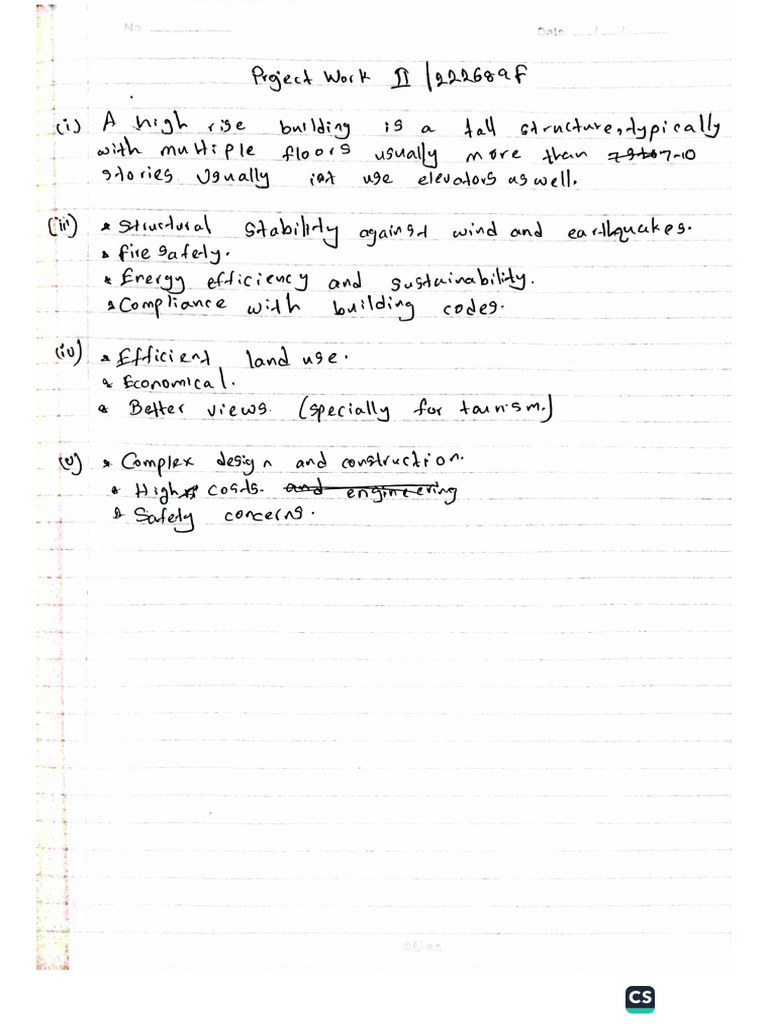 No:
Date
Project Work II / 222689F
(i) A high rise building is a tall structure, typically
with multiple floors usually more than 7-10
stories Usually it use elevators as well.
(iii) * Structural Stability against wind and earthquakes.
* Fire safety.
* Energy efficiency and sustainability.
* Compliance with building codes.
(iv) * Efficient land use.
* Economical.
* Better views. (specially for tourism.)
(v) * Complex design and construction.
* High costs. and engineering
* Safety concerns.
CS